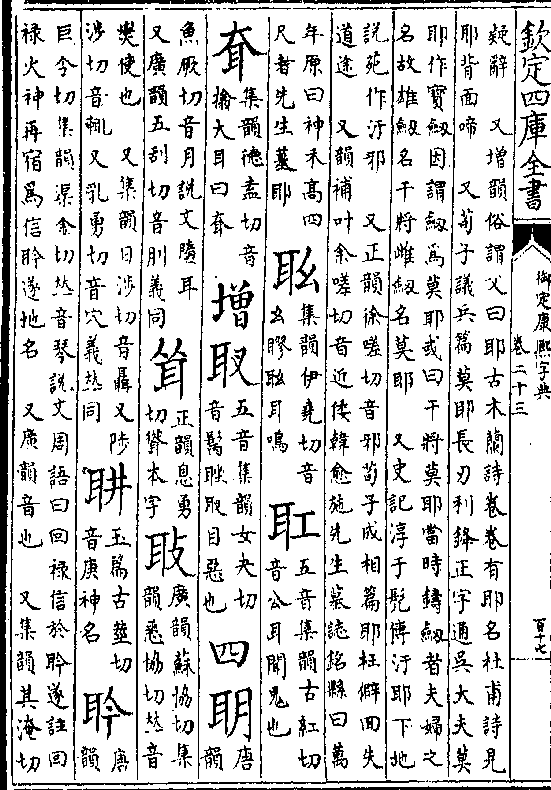 欽定四庫全書
御定康熙字典
卷二十三
百十七
疑辭　又增韻俗謂父曰耶古木蘭詩卷卷有耶名杜甫詩見
耶背面啼　又荀子議兵篇莫耶長刃利鋒正字通吳大夫莫
耶作寶劔因謂劔為莫耶或曰干將莫耶當時鑄劔者夫婦之
名故雄劔名干將雌劔名莫耶　又史記淳于髠傳汙耶下地
說苑作汙邪　又正韻徐嗟切音邪荀子成相篇耶枉僻回失
道途　又韻補叶余嗟切音近倭韓愈施先生墓誌銘縣曰萬
年原曰神禾高四
尺者先生墓耶
集韻伊堯切音
耳鳴
五音集韻古紅切
音公耳聞鬼也
耷
集韻德盍切音
搨大耳曰耷
增
五音集韻女夬切
目惡也
四
䎳
唐
韻
魚厥切音月說文墮耳
又廣韻五刮切音刖義同
正韻息勇
切聳本字
廣韻蘇協切集
韻悉協切𠀤音
燮使也　又集韻日涉切音聶又陟
涉切音輒又乳勇切音宂義𠀤同
玉篇古莖切
音庚神名
耹
唐
韻
巨今切集韻渠金切𠀤音琴說文周語曰回祿信於耹遂註回
祿火神再宿爲信耹遂地名　又廣韻音也　又集韻其淹切